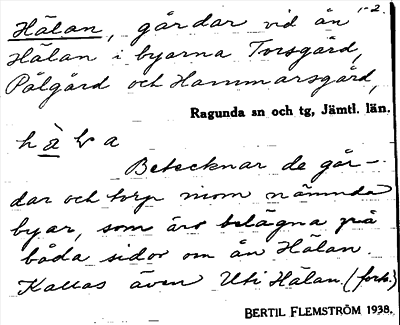 Hälan, gårdar vid ån 1-2.
Hälan i byarna Torsgård,
Pålgård och Hammarsgård,
Ragunda sn och tg, Jämtl. län.
Betecknar de går-
dar och torp inom nämnda
byar, som äro belägna på
båda sidor om ån Hälan.
Kallas även Uti Hälan. (forts.)
BERTIL FLEMSTRÖM 1938.